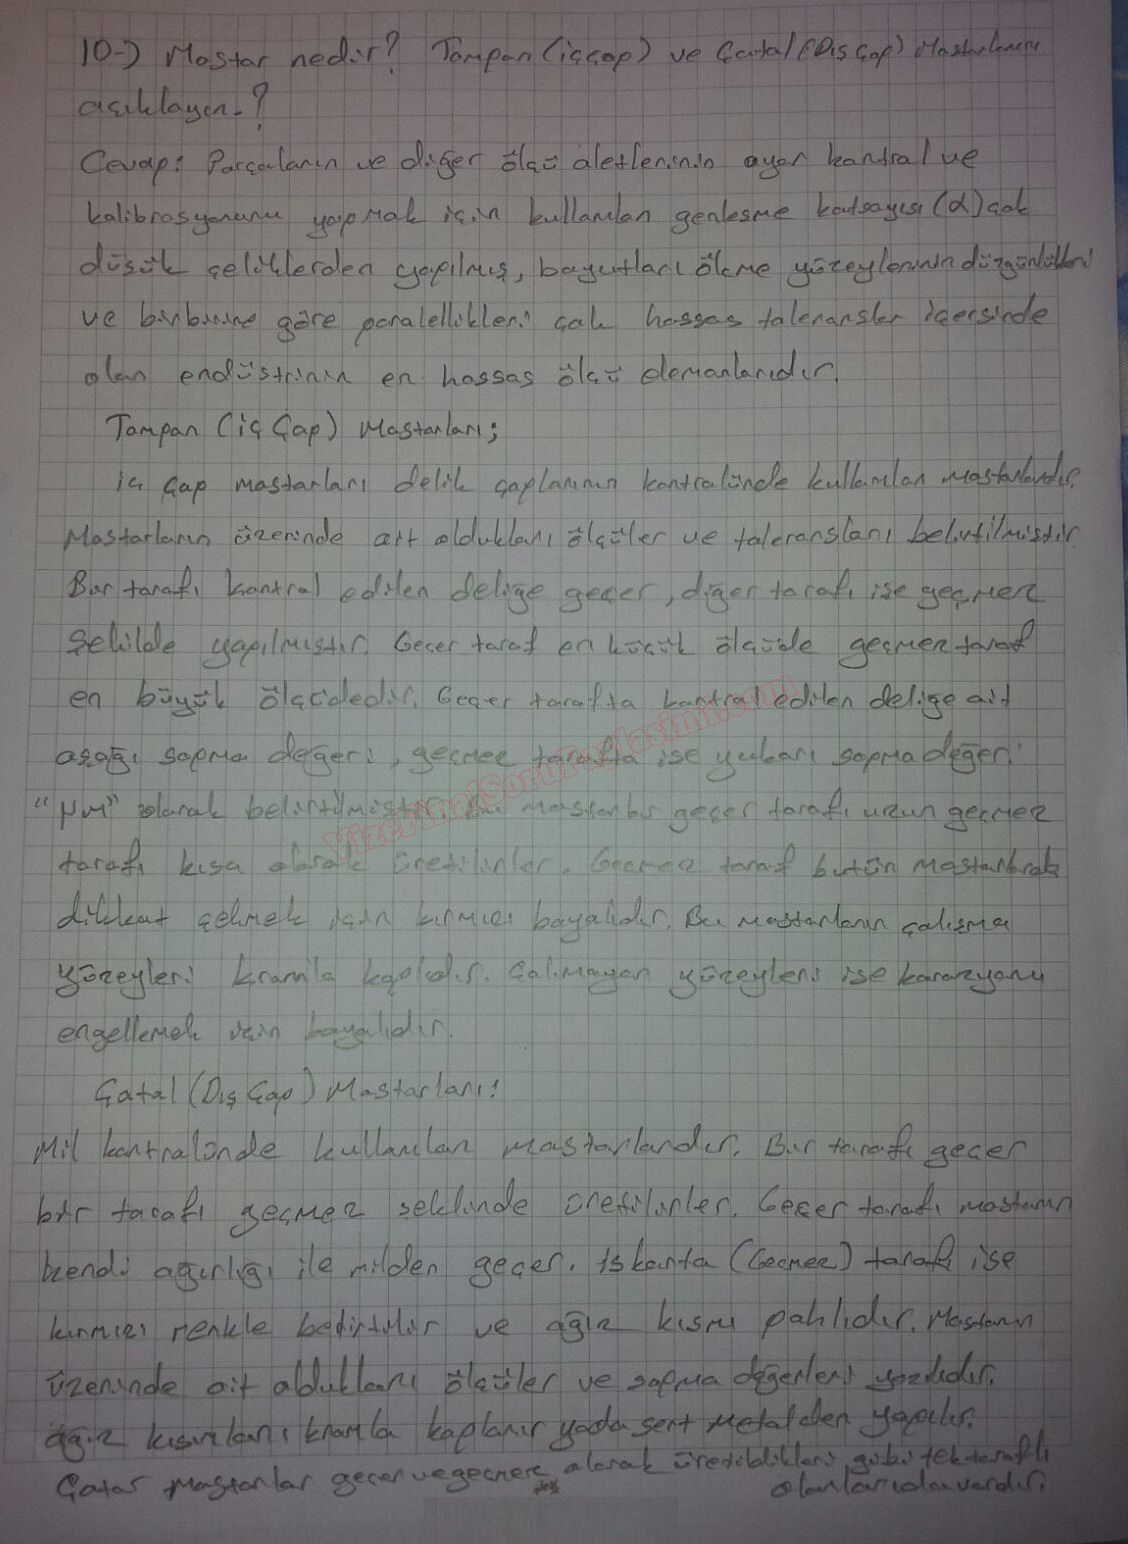 10-) Mastar nedir? Tampon (iç çap) ve Çatal (Dış Çap) Mastarlarını
açıklayın.?
Cevap: Parçaların ve diğer ölçü aletlerinin ayar kontrol ve
kalibrasyonunu yapmak için kullanılan genleşme katsayısı (α) çok
düşük çeliklerden yapılmış, boyutları ölçme yüzeylerinin düzgünlükleri
ve birbirine göre paralellikleri çok hassas toleranslar içersinde
olan endüstrinin en hassas ölçü elemanlarıdır.
Tampon (iç Çap) Mastarları;
iç çap mastarları delik çaplarının kontrolünde kullanılan mastarlardır.
Mastarların üzerinde ait oldukları ölçüler ve toleransları belirtilmiştir.
Bir tarafı kontrol edilen deliğe geçer, diğer tarafı ise geçmez
şekilde yapılmıştır. Geçer taraf en küçük ölçüde geçmez taraf
en büyük ölçüdedir. Geçer tarafta kontrol edilen deliğe ait
aşağı sapma değeri, geçmez tarafta ise yukarı sapma değeri
"µm" olarak belirtilmiştir. Bu mastarlar geçer tarafı uzun geçmez
tarafı kısa olarak üretilirler. Geçmez taraf bütün mastarlarda
dikkat çekmek için kırmızı boyalıdır. Bu mastarların çalışma
yüzeyleri kromla kaplıdır. Çalışmayan yüzeyleri ise korozyonu
engellemek için boyalıdır.
Çatal (Dış Çap) Mastarları:
Mil kontrolünde kullanılan mastarlardır. Bir tarafı geçer
bir tarafı geçmez şeklinde üretilirler. Geçer tarafı mastarın
kendi ağırlığı ile milden geçer. Iskarta (Geçmez) tarafı ise
kırmızı renkle belirtilir ve ağız kısmı pahlıdır. Mastarın
üzerinde ait oldukları ölçüler ve sapma değerleri yazılıdır.
ağız kısımları kromla kaplanır yada sert metalden yapılır.
Çatal mastarlar geçer ve geçmez olarak üretildikleri gibi tek taraflı
olanlarıda vardır.